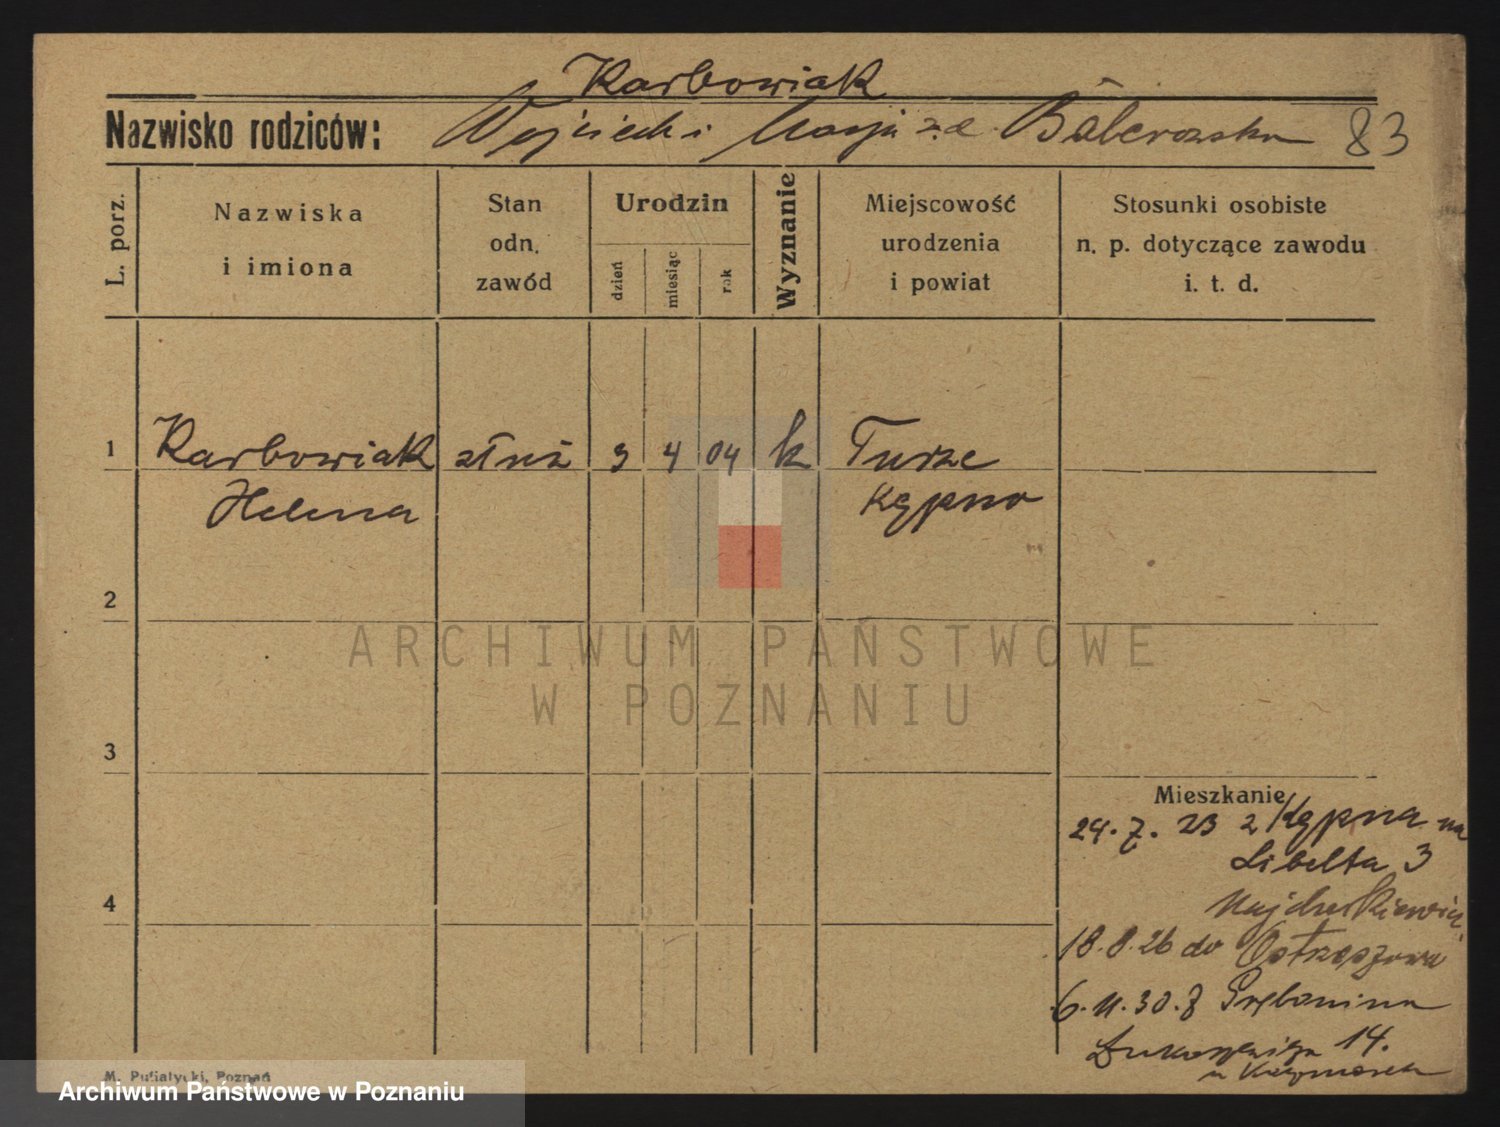 Karbowiak
Nazwisko rodziców: Wojciech i Marja z d. 83
L. porz.
Nazwiska
i imiona
Stan
odn.
zawód
Urodzin
dzień
miesiąc
rok
Wyznanie
Miejscowość
urodzenia
i powiat
Stosunki osobiste
n. p. dotyczące zawodu
i. t. d.
1 Karbowiak służ 3 4 04 k Turze
Helena Kępno
2
ARCHIWUM PAŃSTWOWE
W POZNANIU
3
Mieszkanie
24. 7. 23 z Kępna na
Libelta 3
4
18. 8. 26 do Ostrzeszowa
6. 11. 30. z Grębanina
14.
M. Putiatycki, Poznań
Archiwum Państwowe w Poznaniu